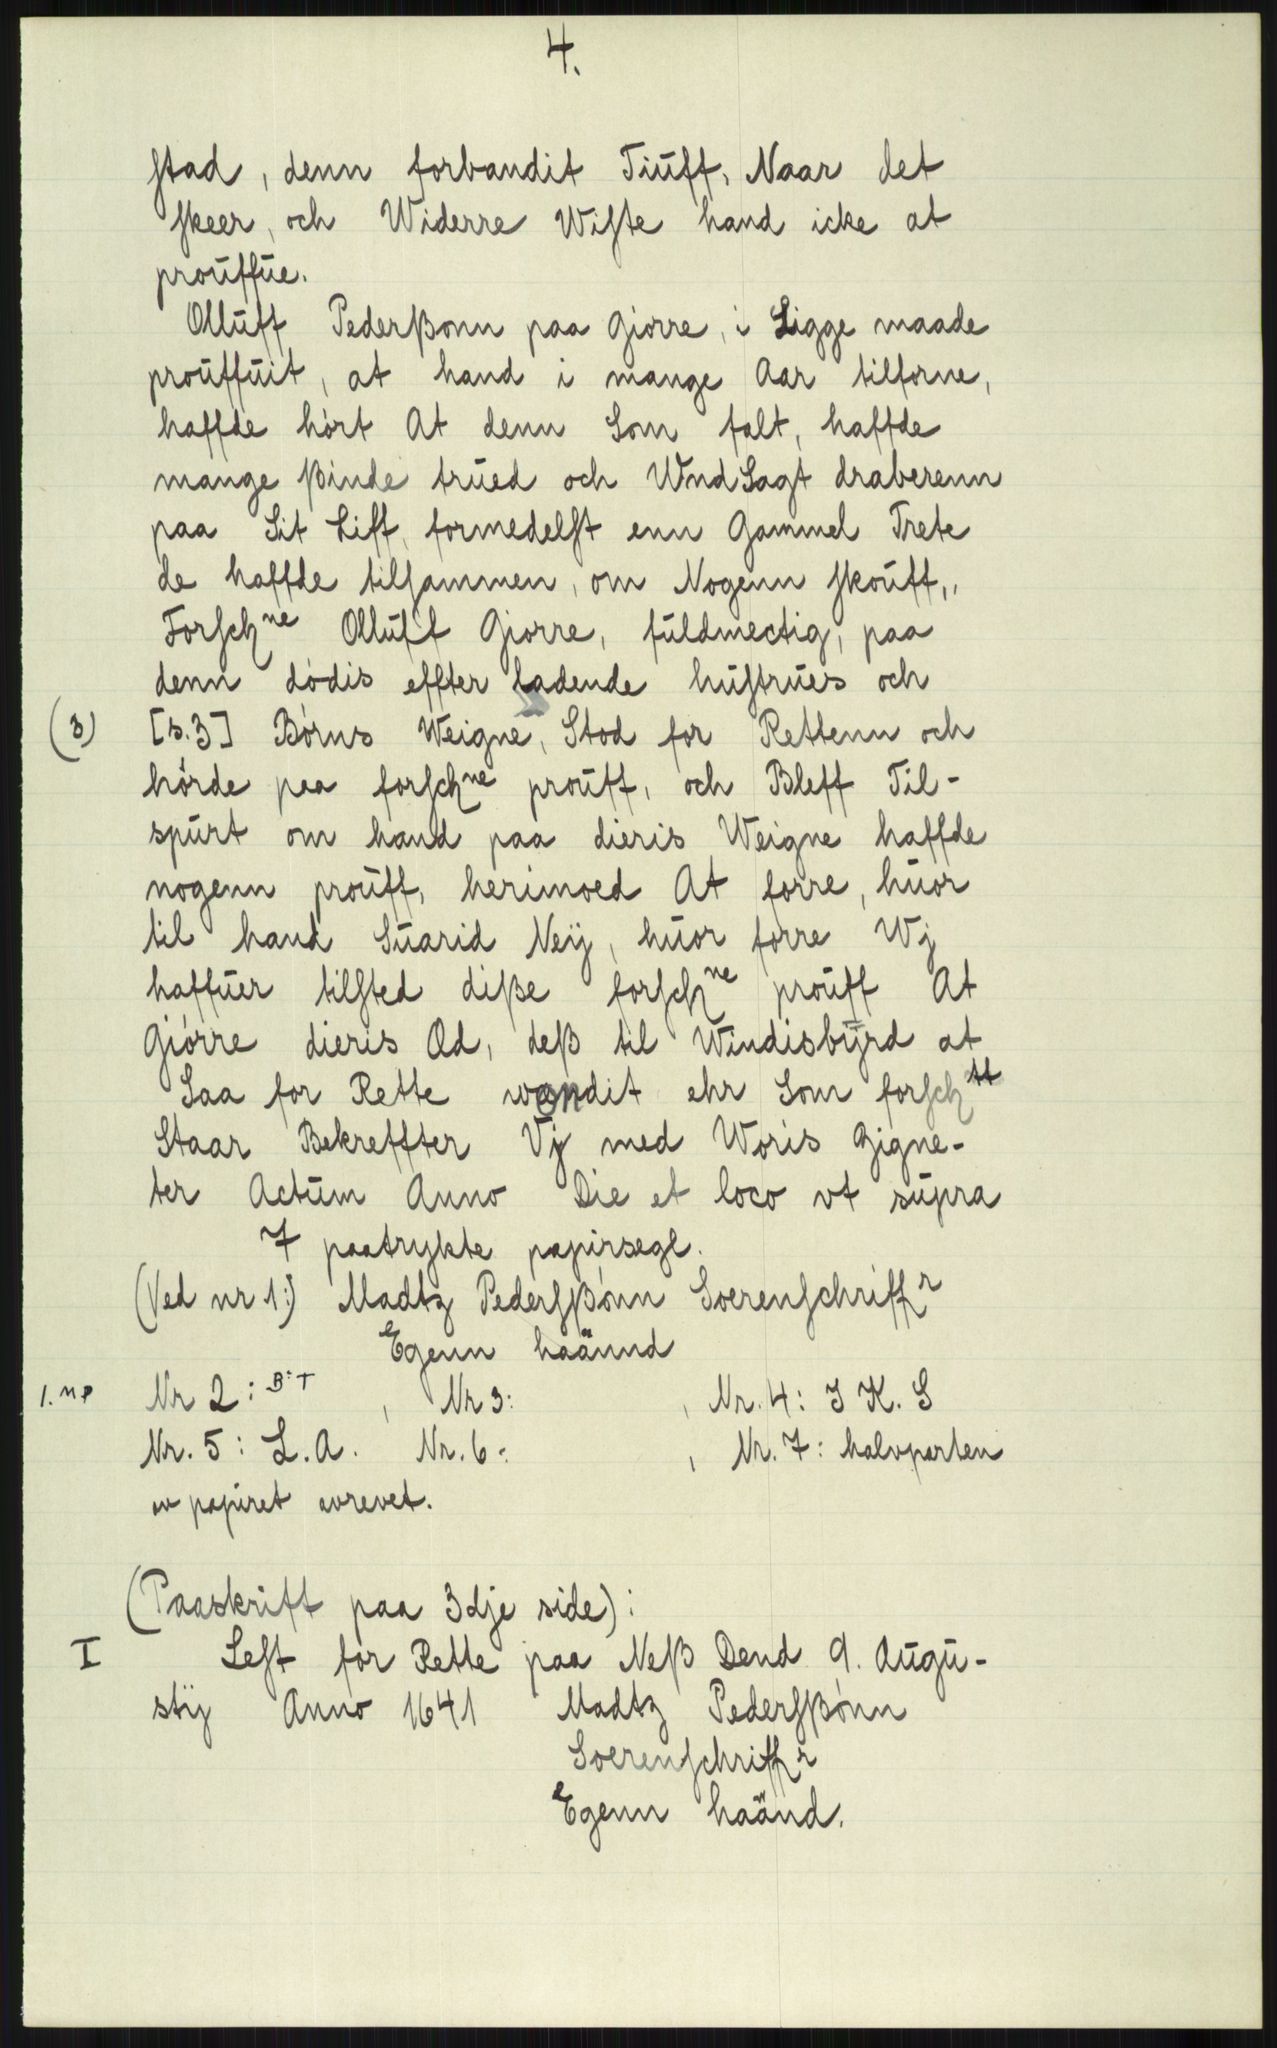 4.
stad, denn forbandit Tiuff, Naar det
skeer, och Widerre Wiste hand icke at
prouffue.
Olluff Pederßonn paa Giorre, i Ligge maade
prouffuit, at hand i mange Aar tilforne,
haffde hört At denn Som falt, haffde
mange ßinde trued och WndSagt draberenn
paa Sit Liff, formedelst enn Gammel Trete
de haffde tilsammen, om Nogenn skouff,,
Forschne Olluff Giorre, fuldmectig, paa
denn dödis effter ladende hustrues och
(3) [s.3] Börns Weigne, Stod for Rettenn och
hörde paa forschne prouff, och Bleff Til-
spurt om hand paa dieris Weigne haffde
nogenn prouff, herimoed At forre, huor
til hand Suarid Neij, huor forre Wj
haffuer tilsted diße forschne prouff At
Giörre dieris Æd, deß til Windisbyrd at
Saa for Rette wondit ehr Som forschtt
Staar Bekreffter Vj med Woris Zigne-
ter Actum Anno Die et loco vt supra
7 paatrykte papirsegl.
(Ved nr 1:) Madtz Pedersßönn Soerenschriffr
Egenn haännd
1. Nr 2: B:T, Nr 3: , Nr. 4: J K. S
Nr. 5: L.A. Nr. 6: , Nr. 7: halvparten
av papiret avrevet.
(Paaskrift paa 3dje side):
I Lest for Rette paa Neß Dend 9. Augu-
stij Anno 1641 Madtz Pedersßönn
Soerenschriffr
Egenn haänd.